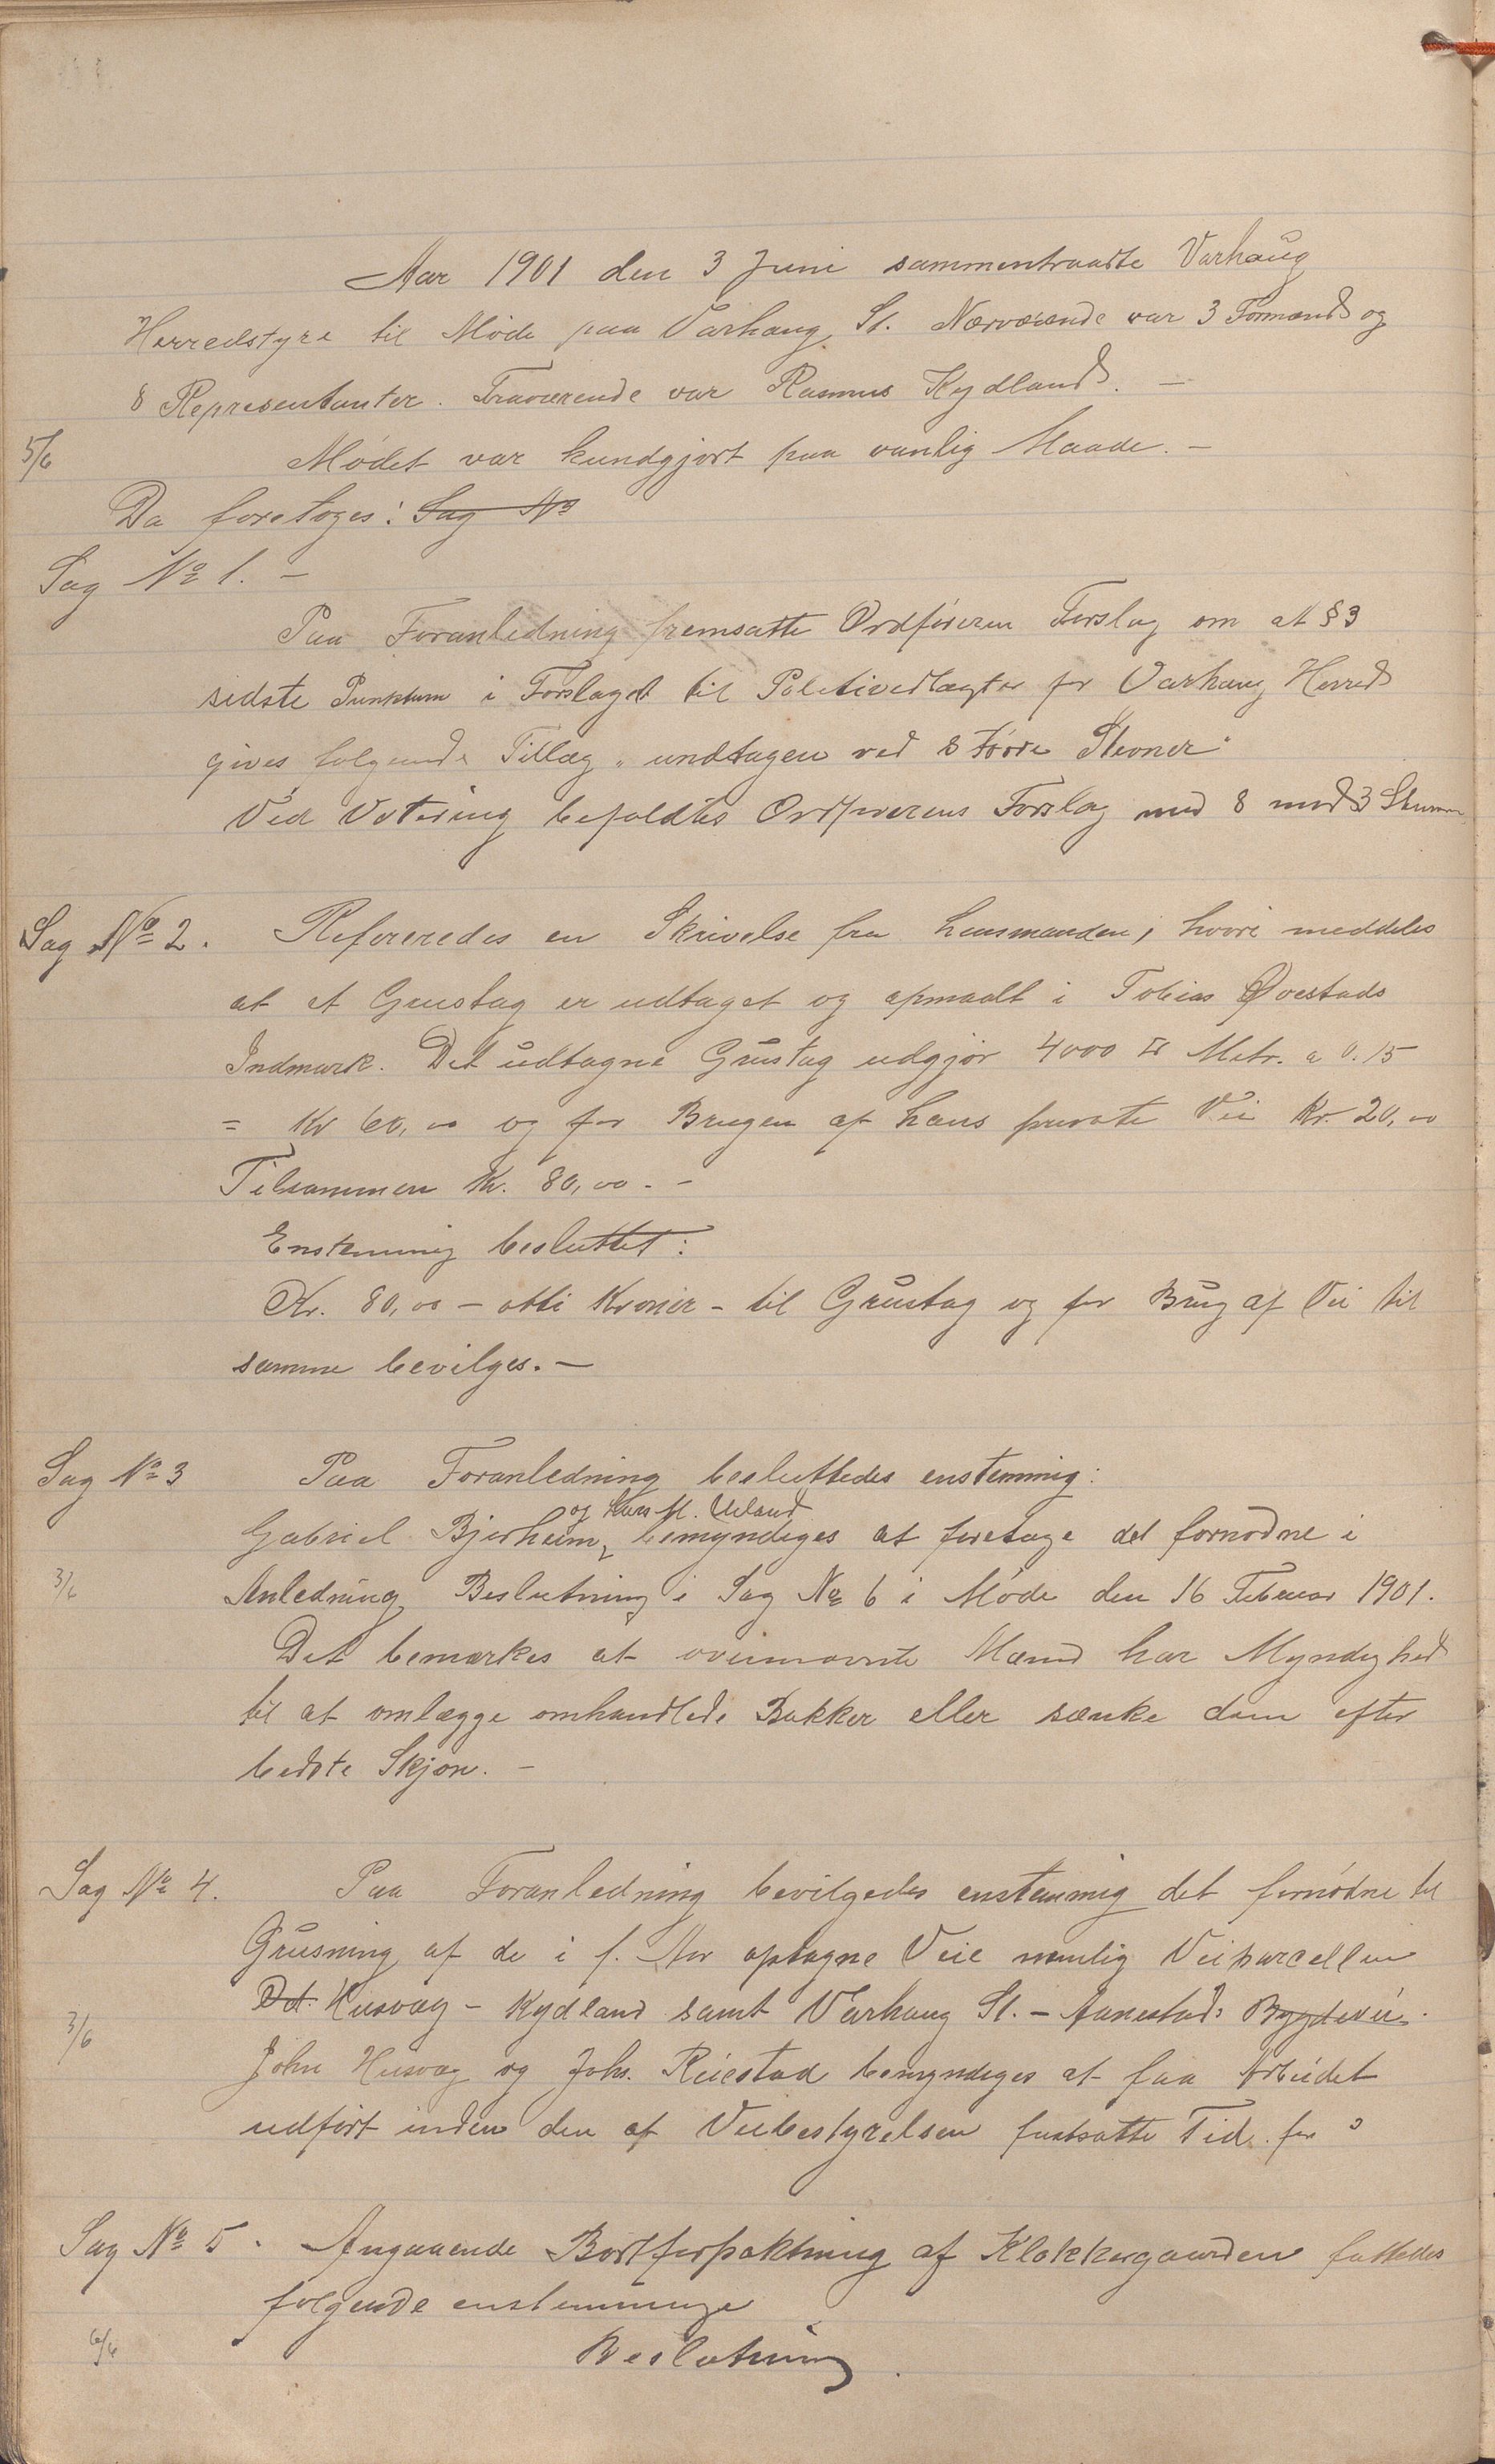 Aar 1901 den 3 Juni sammentraadte Varhaug
Herredstyre til Møde paa Varhaug St. Nærværende var 3 Formænd og
8 Representanter. Fraværende var Rasmus Kydland. —
5/6
Mødet var kundgjort paa vanlig Maade. —
Da foretoges: Sag No
Sag No 1. —
Paa Foranledning fremsatte Ordføreren Forslag om at § 3
sidste Punktum i Forslaget til Politivedtægter for Varhaug Herred
gives følgende Tillæg "undtagen ved større Stevner"
Ved Votering befoldtes Ordførerens Forslag med 8 mod 3 Stemmer
Sag No 2. Refereredes en Skrivelse fra Lensmanden, hvori meddeles
at et Grustag er udtaget og opmaalt i Tobias Øvestads
Indmark. Det udtagne Grustag udgjør 4000 □ Metr. a 0.15
= Kr 60,00 og for Brugen af hans private Vei Kr. 20,00
Tilsammen Kr. 80,00. —
Enstemmig besluttet:
Kr. 80,00 — otti Kroner — til Grustag og for Brug af Vei til
samme bevilges. —
Sag No 3 Paa Foranledning besluttedes enstemmig:
og Lars M. Ueland
Gabriel Bjerheim bemyndiges at foretage det fornødne i
3/6
Anledning Beslutning i Sag No 6 i Møde den 16 Februar 1901.
Det bemærkes at ovennævnte Mænd har Myndighed
til at omlægge omhandlede Bakker eller sænke dem efter
bedste Skjøn. —
Sag No 4. Paa Foranledning bevilgedes enstemmig det fornødne til
Grusning af de i f. Aar optagne Veie nemlig Veiparcellen
Husvæg - Kydland samt Varhaug St. - Aanestads Bygdevei.
3/6
John Husvæg og Johs. Reiestad bemyndiges at faa Arbeidet
udført inden den af Veibestyrelsen fastsatte Tid.
Sag No 5. Angaaende Bortforpaktning af Klokkergaarden fattedes
følgende enstemmige
6/6
Beslutning.